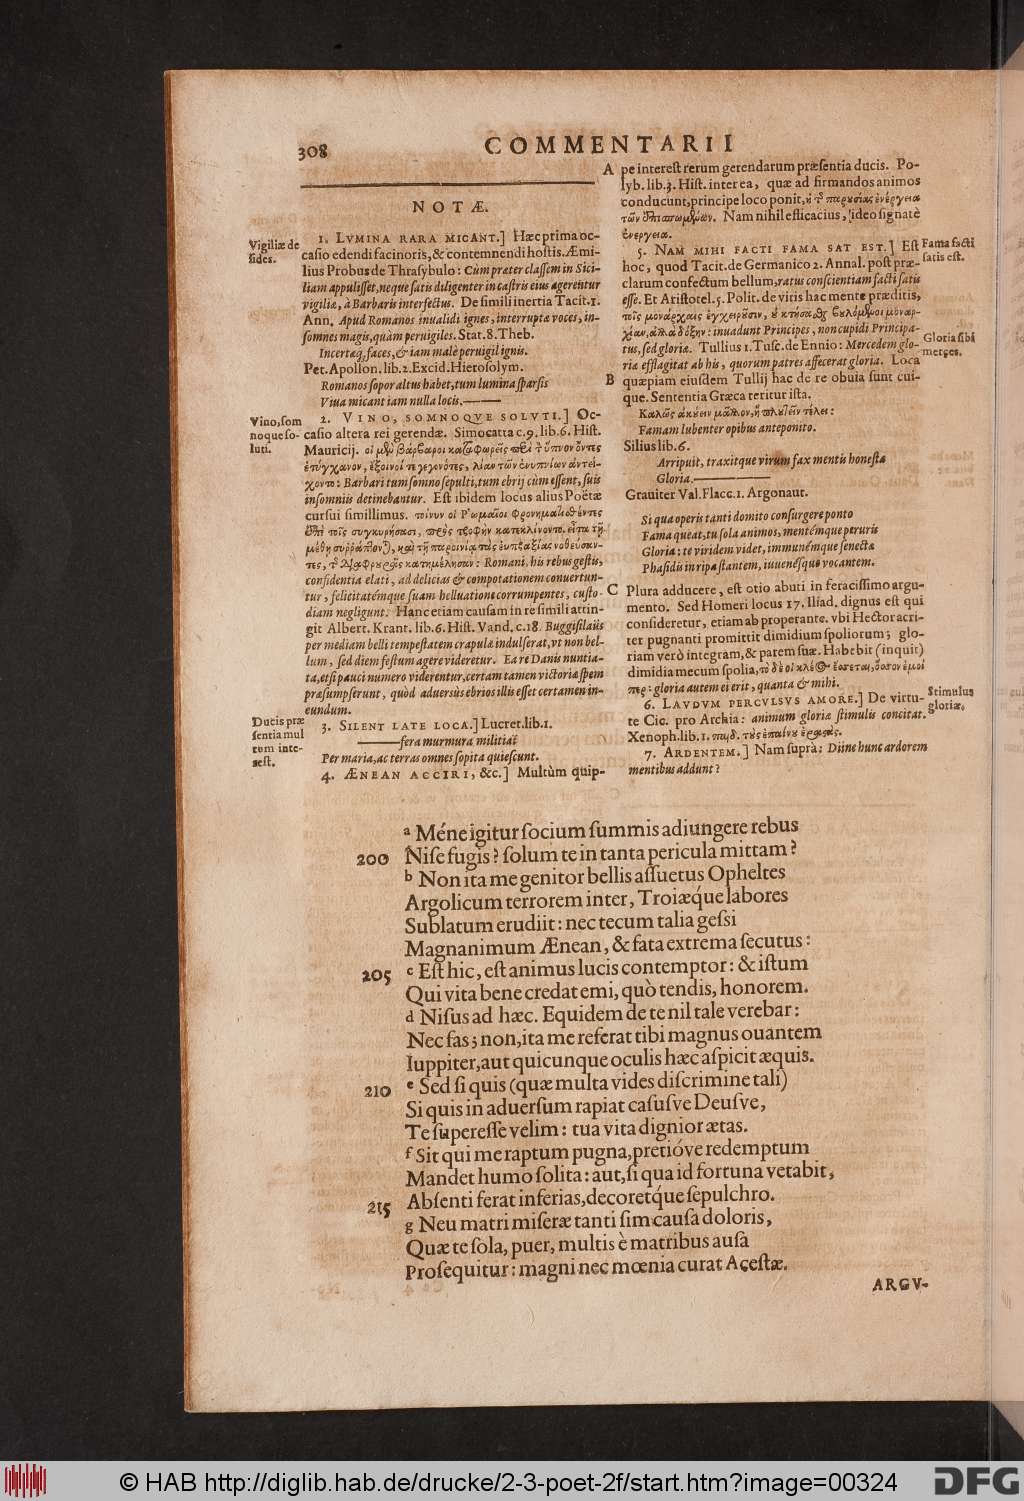 308
COMMENTARII
NOTÆ.
Vigiliæ de
fides.
1. LVMINA RARA MICANT.] Hæc prima oc-
casio edendi facinoris, & contemnendi hostis. Æmi-
lius Probus de Thrasybulo: Cùm præter classem in Sici-
liam appulisset, neque satis diligenter in castris eius agerentur
vigiliæ, à Barbaris interfectus. De simili inertia Tacit. 1.
Ann. Apud Romanos inualidi ignes, interruptæ voces, in-
somnes magis, quàm peruigiles. Stat. 8. Theb.
Incertæq́; faces, & iam malè peruigil ignis.
Pet. Apollon. lib. 2. Excid. Hierosolym.
Romanos sopor altus habet, tum lumina sparsis
Viua micant iam nulla locis.———
Vino, som
noque so-
luti.
2. VINO, SOMNOQVE SOLVTI.] Oc-
casio altera rei gerendæ. Simocatta c. 9. lib. 6. Hist.
Mauricij. οἱ μὲν βάρβαροι
ἐτύγχανον, ἔξοινοί τε γεγονότες, λίαν τῶν ἐνυπνίων ἀντεί-
χοντο: Barbari tum somno sepulti, tum ebrij cùm essent, suis
insomniis detinebantur. Est ibidem locus alius Poëtæ
cursui simillimus. τοίνυν οἱ Ῥωμαῖοι
τοῖς συγκυρήσασι,
μέθῃ
Romani, his rebus gestis,
confidentia elati, ad delicias & compotationem conuertun-
tur, felicitatémque suam helluatione corrumpentes, custo-
diam negligunt. Hanc etiam causam in re simili attin-
git Albert. Krant. lib. 6. Hist. Vand. c. 18. Buggisilaüs
per mediam belli tempestatem crapulæ indulserat, vt non bel-
lum, sed diem festum agere videretur. Ea re Danis nuntia-
ta, etsi pauci numero viderentur, certam tamen victoriæ spem
præsumpserunt, quòd aduersùs ebrios illis esset certamen in-
eundum.
Ducis præ
sentia mul
tum inte-
rest.
3. SILENT LATE LOCA.] Lucret. lib. 1.
———fera murmura militiaï
Per maria, ac terras omnes sopita quiescunt.
4. ÆNEAN ACCIRI, &c.] Multùm quip-
A
pe interest rerum gerendarum præsentia ducis. Po-
lyb. lib. 3. Hist. inter ea, quæ ad firmandos animos
conducunt, principe loco ponit, ἡ τ παρουσίας ἐνέργεια
τῶν Nam nihil efficacius, ideo signatè
ἐνεργεια.
5. NAM MIHI FACTI FAMA SAT EST.] Est
Fama facti
satis est.
hoc, quod Tacit. de Germanico 2. Annal. post præ-
clarum confectum bellum, ratus conscientiam facti satis
esse. Et Aristotel. 5. Polit. de viris hac mente præditis,
τοῖς μονάρχαις ἐγχειροῦσιν,
χίαν, ἀλλὰ δόξην: inuadunt Principes, non cupidi Principa-
tus, sed gloriæ. Tullius 1. Tusc. de Ennio: Mercedem glo-
Gloria sibi
merces.
riæ efflagitat ab his, quorum patres affecerat gloria. Loca
B
quæpiam eiusdem Tullij hac de re obuia sunt cui-
que. Sententia Græca teritur ista.
Καλῶς ἀκούειν μᾶλλον, ἢ πλουτεῖν θέλει:
Famam lubenter opibus anteponito.
Silius lib. 6.
Arripuit, traxitque virum fax mentis honestæ
Gloria.———
Grauiter Val. Flacc. 1. Argonaut.
Si qua operis tanti domito consurgere ponto
Fama queat, tu sola animos, mentémque peruris
Gloria: te viridem videt, immunémque senectæ
Phasidis in ripa stantem, iuuenésque vocantem.
C
Plura adducere, est otio abuti in feracissimo argu-
mento. Sed Homeri locus 17. Iliad. dignus est qui
consideretur, etiam ab properante. vbi Hector acri-
ter pugnanti promittit dimidium spoliorum; glo-
riam verò integram, & parem suæ. Habebit (inquit)
dimidia mecum spolia, τὸ δέ οἱ κλέος ἔσσεται, ὅσσον ἐμοί
περ: gloria autem ei erit, quanta & mihi.
6. LAVDVM PERCVLSVS AMORE.] De virtu-
Stimulus
gloriæ.
te Cic. pro Archia: animum gloriæ stimulis concitat.
Xenoph. lib. 1. παιδ. τοὺς ἐπαίνου ἐραστὰς.
7. ARDENTEM.] Nam suprà: Diine hunc ardorem
mentibus addunt?
a Méne igitur socium summis adiungere rebus
200 Nise fugis? solum te in tanta pericula mittam?
b Non ita me genitor bellis assuetus Opheltes
Argolicum terrorem inter, Troiæq́ue labores
Sublatum erudiit: nec tecum talia gessi
Magnanimum Ænean, & fata extrema secutus:
205 c Est hic, est animus lucis contemptor: & istum
Qui vita bene credat emi, quò tendis, honorem.
d Nisus ad hæc. Equidem de te nil tale verebar:
Nec fas; non, ita me referat tibi magnus ouantem
Iuppiter, aut quicunque oculis hæc aspicit æquis.
210 e Sed si quis (quæ multa vides discrimine tali)
Si quis in aduersum rapiat casusve Deusve,
Te superesse velim: tua vita dignior ætas.
f Sit qui me raptum pugna, pretióve redemptum
Mandet humo solita: aut, si qua id fortuna vetabit,
215 Absenti ferat inferias, decoretq́ue sepulchro.
g Neu matri miseræ tanti sim causa doloris,
Quæ te sola, puer, multis è matribus ausa
Prosequitur: magni nec mœnia curat Acestæ.
ARGV-
© HAB http://diglib.hab.de/drucke/2-3-poet-2f/start.htm?image=00324
DFG